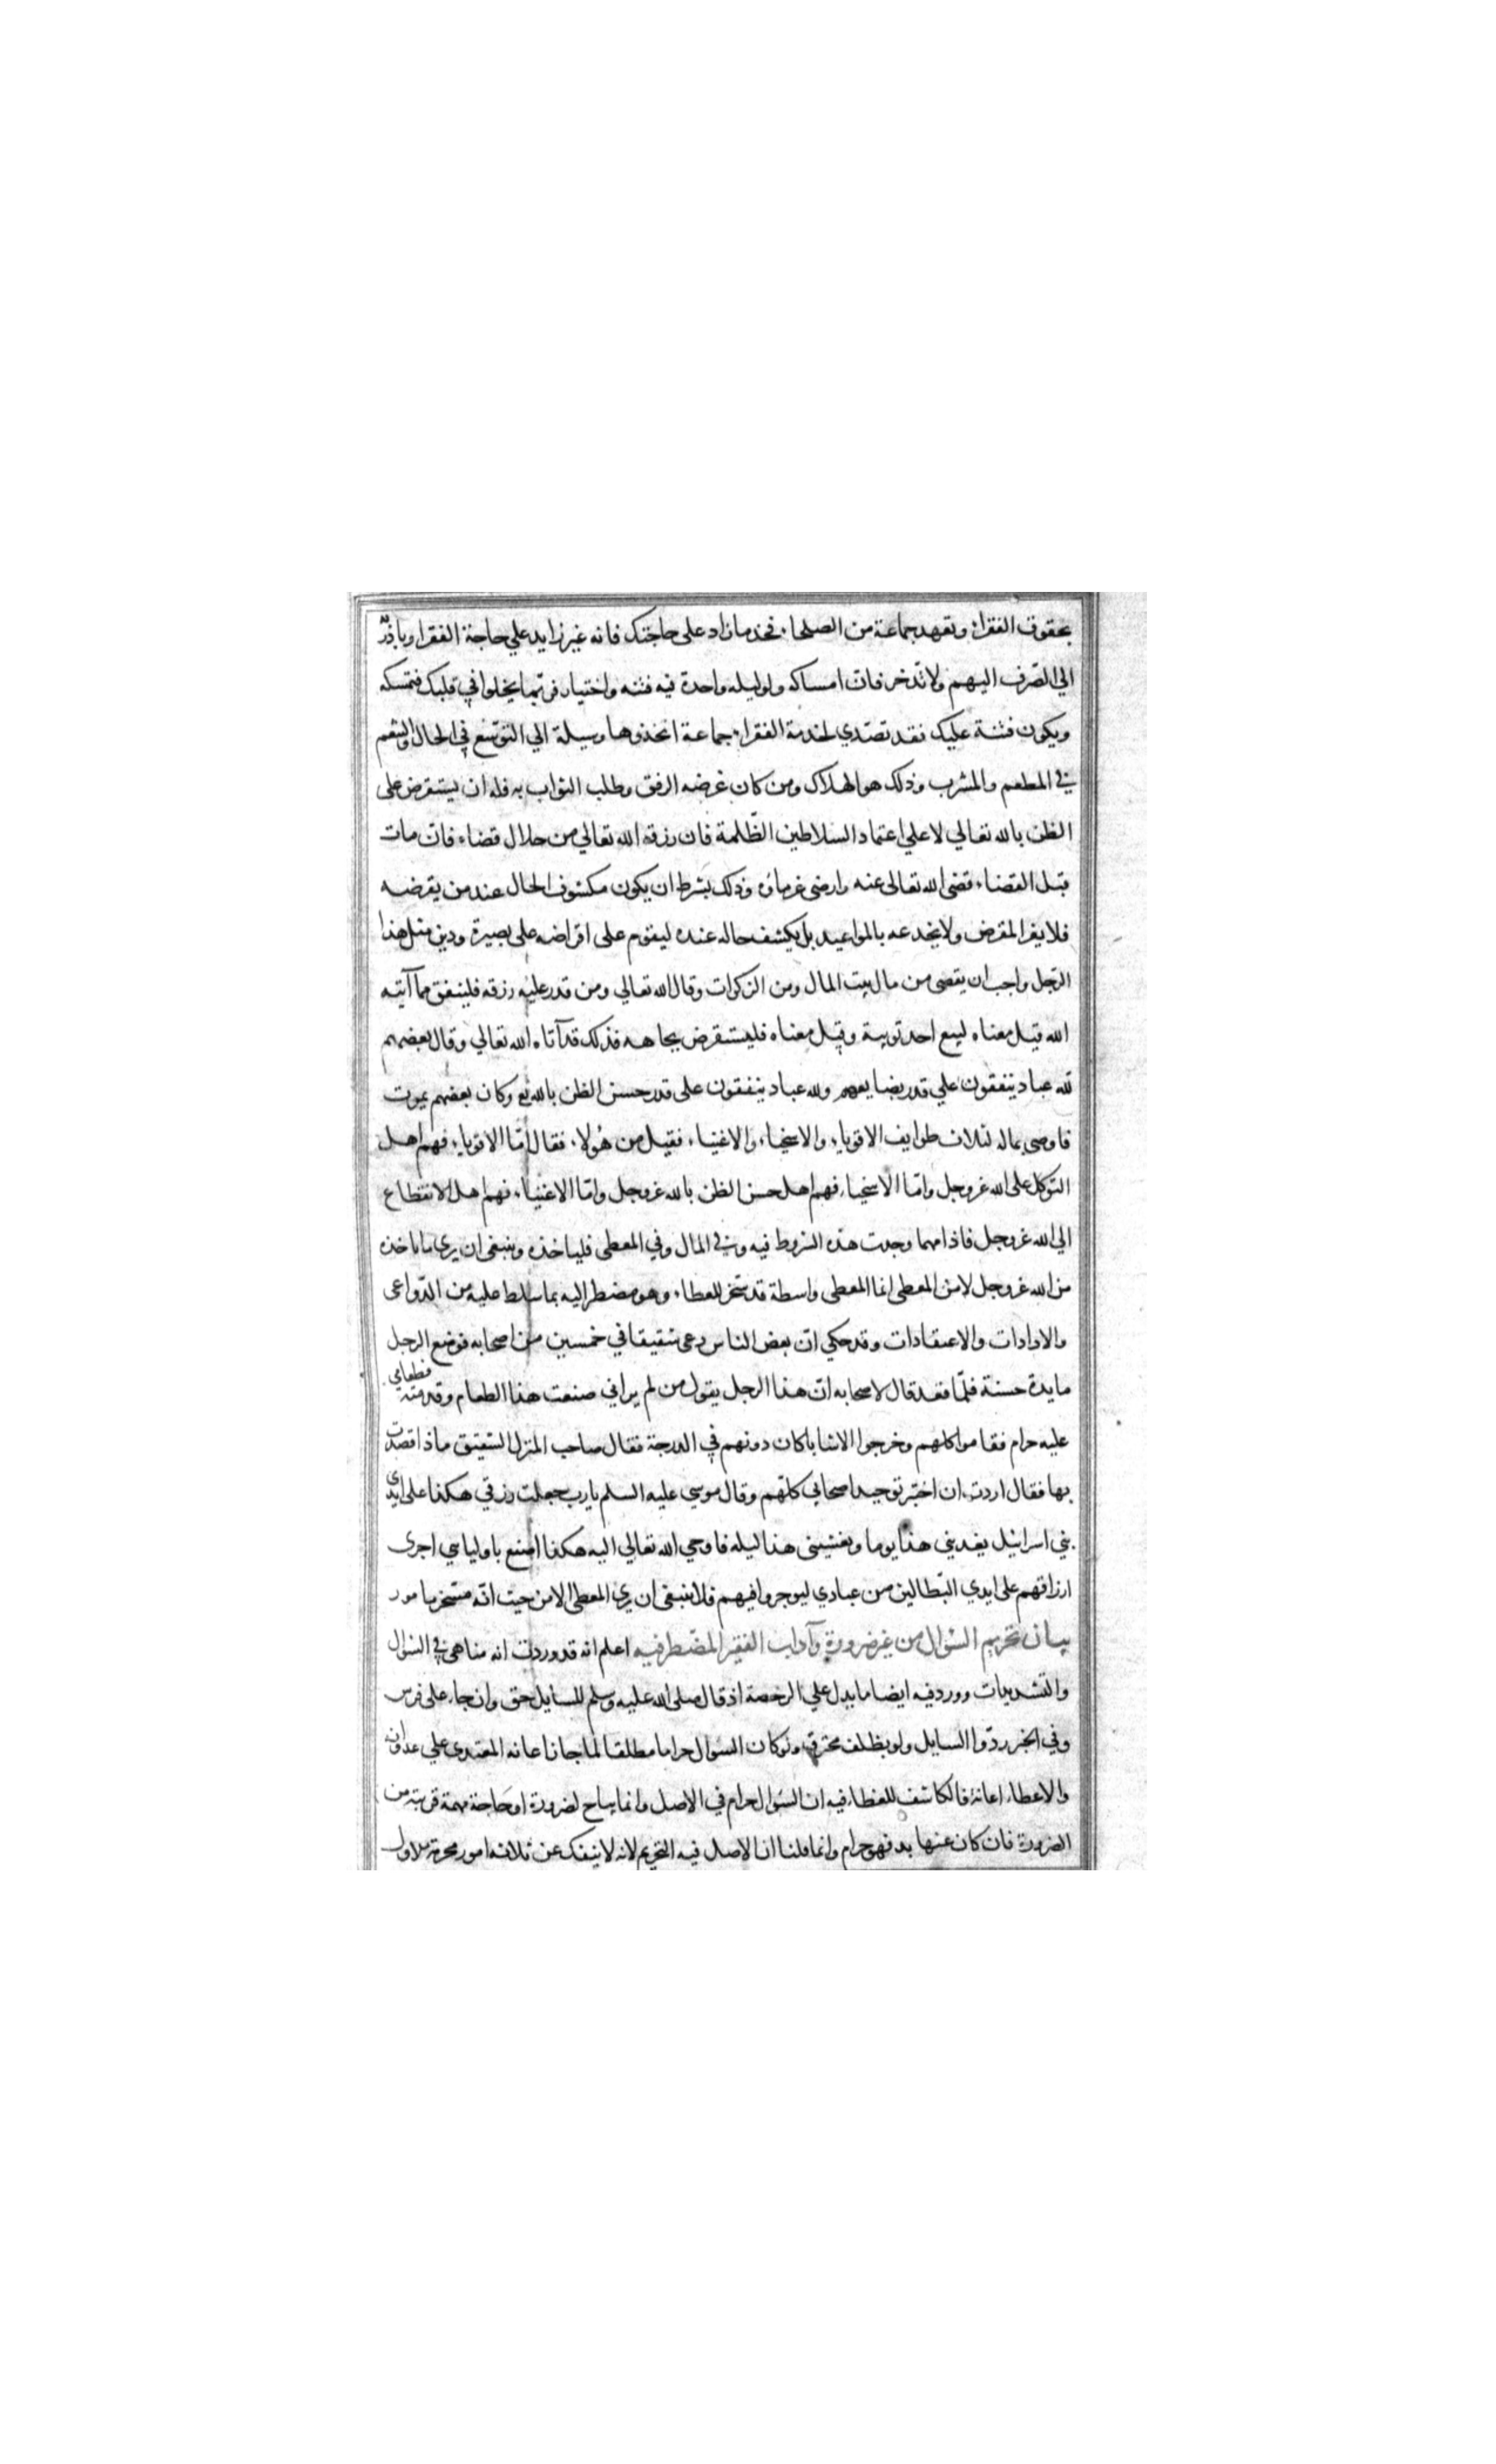 بحقوق الفقراء وتعهد جماعة من الصلحاء فخذ ما زاد على حاجتك فانه غير زايد على حاجة الفقرا وبادر به
الى الصرف اليهم ولا تدخر فان امساكه ولو ليله واحدة فيه فتنه واختيار فربما يحلوا في قلبك فتمسكه
ويكون فتنة عليك فقد تصدي لخدمة الفقراء جماعة اتخذوها وسيلة الي التوسع في الحال والتنعم
في المطعم والمشرب وذلك هو الهلاك ومن كان غرضه الرفق وطلب الثواب به فله ان يستقرض على
الظن بالله تعالي لا علي اعتماد السلاطين الظلمة فان رزقه الله تعالي من حلال قضاه فان مات
قبل القضاء قضى الله تعالى عنه وارضى غرماؤه وذلك بشرط ان يكون مكشوف الحال عند من يقرضه
فلا يغر المقرض ولا يخدعه بالمواعيد بل يكشف حاله عنده ليقوم على اقراضه على بصيرة ودين مثل هذا
الرجل واجب ان يقضى من مال بيت المال ومن الزكوات وقال الله تعالي ومن قدر عليه رزقه فلينفق مما آتيه
الله قيل معناه ليبع احد ثوبيه وقيل معناه فليستقرض بجاهه فذلك قد آتاه الله تعالي وقال بعضهم
لله عباد ينفقون علي قدر بضايعهم ولله عباد ينفقون على قدر حسن الظن بالله تع وكان بعضهم يموت
فاوصى بماله لثلاث طوايف الاقوياء والاسخياء والاغنياء فقيل من هولاء فقال اما الاقوياء فهم اهل
التوكل على الله عز وجل واما الاسخياء فهم اهل حسن الظن بالله عز وجل واما الاغنياء فهم اهل الانقطاع
الي الله عز وجل فاذا مهما وجدت هذه الشروط فيه وفي المال وفي المعطى فلياخذه وينبغى ان يرى ما ياخذه
من الله عز وجل لا من المعطي انما المعطى واسطة قد سخر للعطاء وهو مضطر اليه بما سلط عليه من الدواعى
والارادات والاعتقادات وقد حكي ان بعض الناس دعى شقيقا في خمسين من اصحابه فوضع الرجل
مايدة حسنة فلما قعد قال لاصحابه ان هذا الرجل يقول من لم يراني صنعت هذا الطعام وقدمته فطعامي
عليه حرام فقاموا كلهم وخرجوا الا شابا كان دونهم في الدرجة فقال صاحب المنزل لشقيق ماذا قصدت
بها فقال اردت ان اختبر توحيد اصحابي كلهم وقال موسي عليه السلم يا رب جعلت رزقي هكذا على ايدى
بني اسرائيل يغديني هذا يوما ويعشيني هذا ليله فاوحي الله تعالي اليه هكذا اصنع باوليايي اجرى
ارزاقهم على ايدي البطالين من عبادي ليوجروا فيهم فلا ينبغى ان يري المعطى الا من حيث انه مسخر مامور
بيان تحريم السؤال من غير ضرورة وآداب الفقير المضطر فيه اعلم انه قد وردت انه مناهى في السؤال
والتشديدات وورد فيه ايضا ما يدل علي الرخصة اذ قال صلى الله عليه وسلم للسايل حق وان جاء على فرس
وفي الخبر ردوا السايل ولو بظلف محترق ولو كان السؤال حراما مطلقا لما جاز اعانه المعتدى علي عدوانه
والاعطاء اعانة فالكاشف للغطاء فيه ان السؤال حرام في الاصل وانما يباح لضرورة او حاجة مهمة قريبة من
الضرورة فان كان عنها بد فهو حرام وانما قلنا ان الاصل فيه التحريم لانه لا ينفك عن ثلاثه امور محرمة الاول